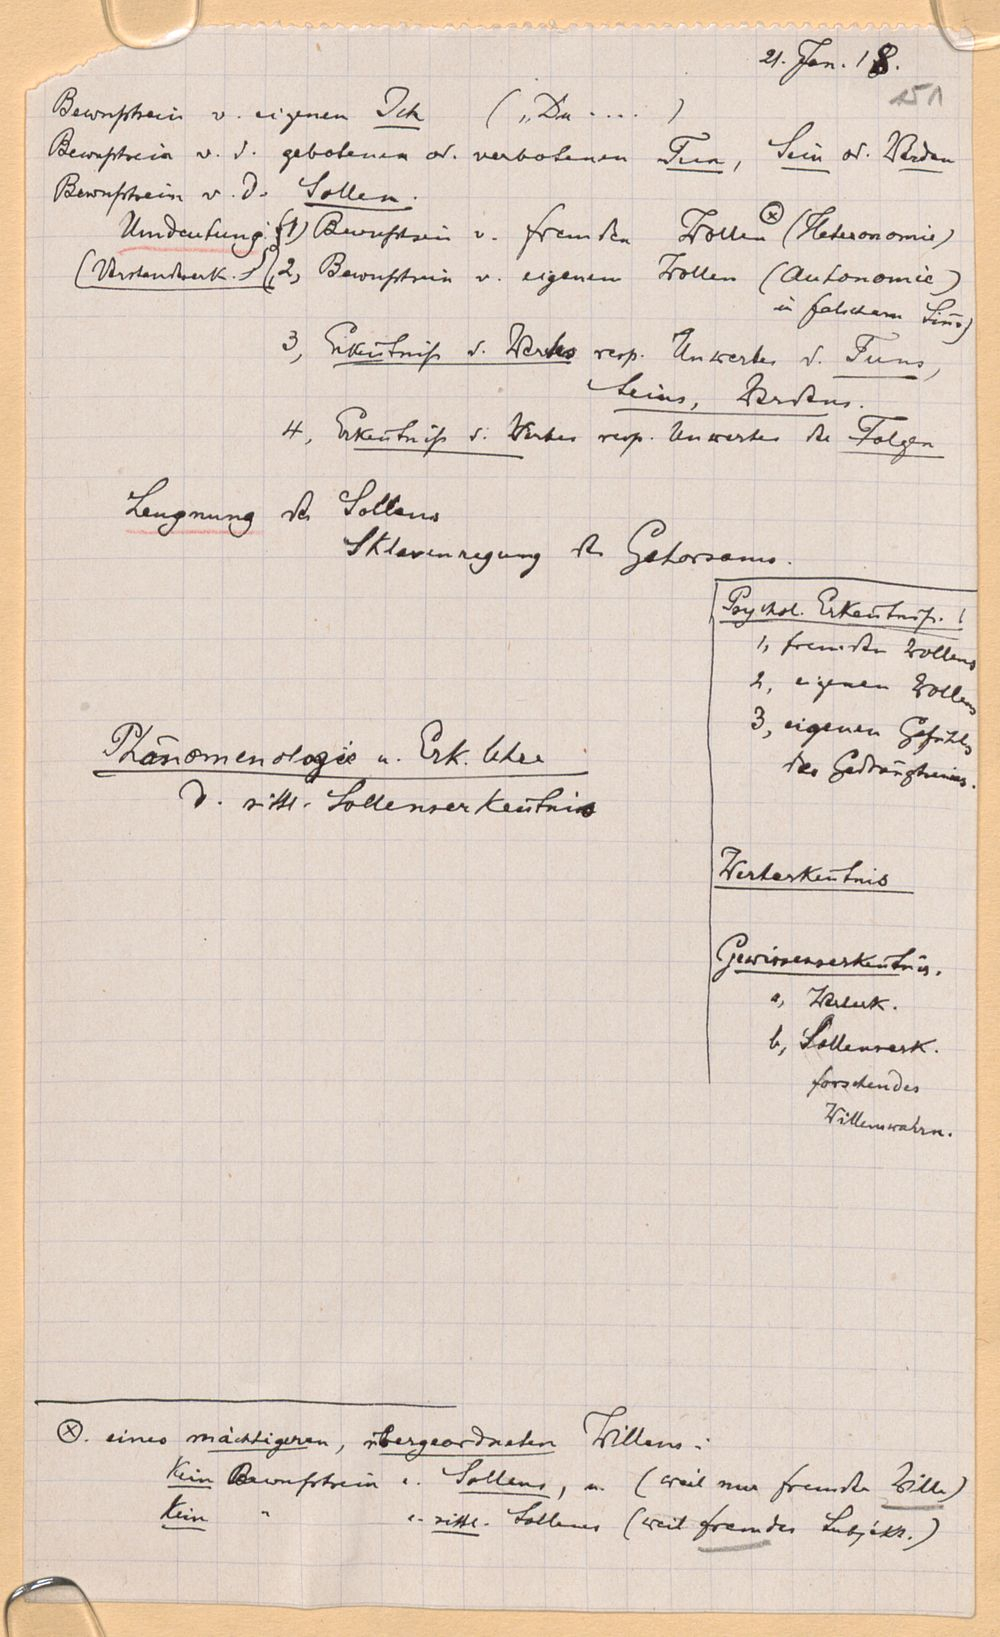 21. Jan. 18.
151
Bewußtsein v. eigenen Ich ( „Du .... )
Bewußtsein v. d. gebotenen od. verbotenen Tun, Sein od. Werden
Bewußtsein v. d. Sollen.
Umdeutung: 1) Bewußtsein v. fremden Wollen ⊗ (Heteronomie)
(Verstandeserk.) 2, Bewußtsein v. eigenen Wollen (Autonomie)
in falschem Sinn)
3, Erkenntniß d. Wertes resp. Unwertes d. Tuns,
Seins, Werdens.
4, Erkenntniß d. Wertes resp. Unwertes der Folgen
Leugnung des Sollens
Sklavenregung des Gehorsams.
Psychol. Erkenntniß. !
1, fremden Wollens
2, eigenen Wollens
3, eigenen Gefühls
des Gedrängtseins.
Phänomenologie u. Erk. lehre
d. sittl. Sollenserkenntnis
Werterkenntnis
Gewissenserkenntnis.
a, Werterk.
b, Sollenserk.
forschendes
Willenswahrn.
⊗. eines mächtigeren, übergeordneten Willens:
Kein Bewußtsein e. Sollens, u. (weil nur fremder Wille)
Kein " e. sittl. Sollens (weil fremdes Subjekt.)